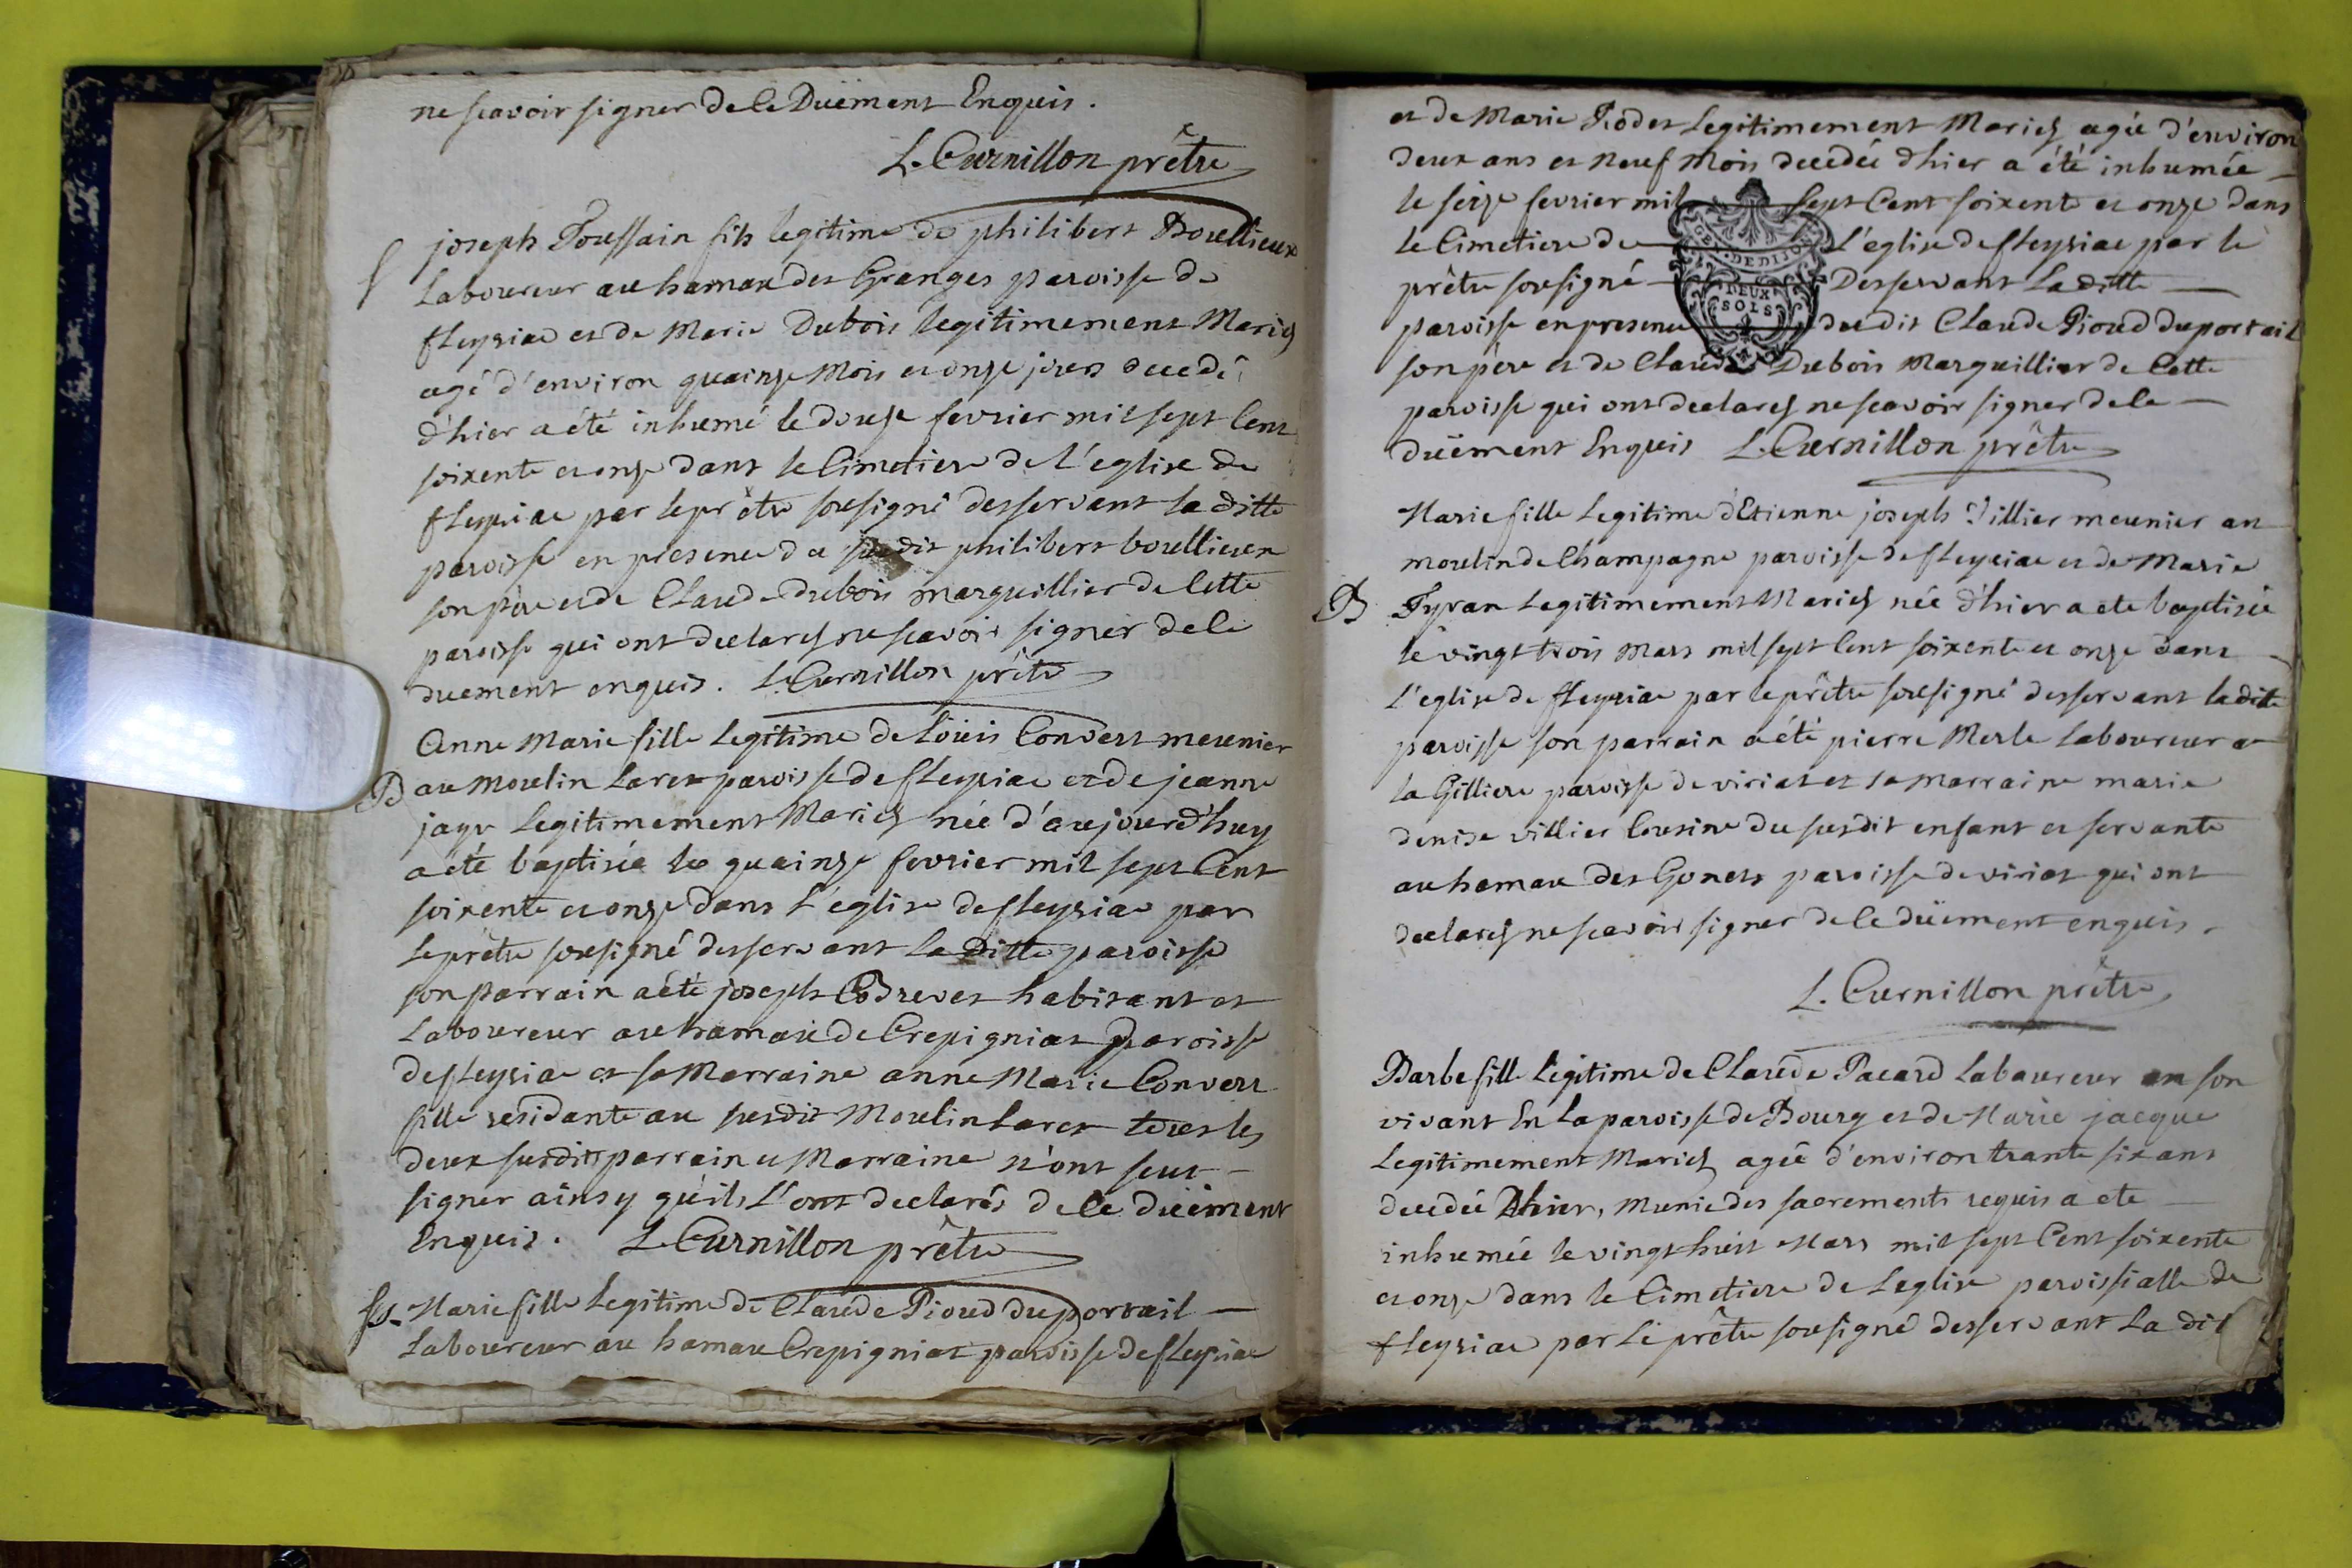 ne scavoir signer de ce Düement Enquis.
L. Curnillon prêtre
S joseph Toussain fils legitime de philibert Bouellieux
Laboureur au hamau des Granges paroisse de
fleyriac et de Marie Dubois legitimement Mariés
agé d'environ quainze Mois et onze jours decedé
d'hier a été inhumé le douze fevrier mil sept Cent
soixente et onze dans le Cimetiere de l'eglise de
fleyriac par le prêtre sousigné desservant la ditte
paroisse en presence du susdit philibert bouellieux
son père et de Claude dubois marguillier de Cette
paroisse qui ont declarés ne scavoir signer de ce
duement enquis. L. Curnillon prêtre
Anne Marie fille Legitime de loüis Convert meunier
B au Moulin Laret paroisse de fleyriac et de jeanne
jayr Legitimement Mariés née d'aujourd'huy
a été baptisée le quainze fevrier mil sept Cent
soixente et onze dans l'église de fleyriac par
le prêtre sousigné desservant la Ditte paroisse
son parrain a été joseph Codrevet habitant et
Laboureur au hamau de Crepigniat Paroisse
de fleyriac et sa Marraine anne Marie Convert
fille residante au susdit Moulin Laret tous les
deux susdits parrain et Marraine n'ont seut
signer ainsy qu'ils L'ont declarés de ce düement
Enquis. L. Curnillon prêtre
Ss. Marie fille Legitime de Claude Pioud duportail
Laboureur au hamau Crepigniat paroisse de fleyriac
et de Marie Rodet Legitimement Mariés agée d'environ
deux ans et Neuf Mois decedée d'hier a été inhumée
le seize fevrier mil sept Cent soixente et onze dans
le Cimetiere de L'eglise de fleyriac par le
prêtre sousigné Desservant La ditte
GE. DE DIJ
DEUX
SOLS
paroisse en presence du dit Claude Pioud duportail
son père et de Claude Dubois Marguillier de Cette
paroisse qui ont declarés ne scavoir signer de ce
duëment Enquis L. Curnillon prêtre
Marie fille Legitime d'Etienne joseph Villier meunier au
moulin de Champagne paroisse de fleyriac et de Marie
B Tyran Legitimement Mariés née d'hier a ete baptisée
le vingt trois Mars mil sept Cent soixente et onze dans
l'eglise de fleyriac par le prêtre sousigné desservant ladite
paroisse son parrain a été pierre Merle Laboureur a
la Gilliere paroisse de viriat et sa Marraine marie
denise villier Cousine du susdit enfant et servante
au hamau des Gonets paroisse de viriat qui ont
declarés ne scavoir signer de ce düement enquis.
L. Curnillon prêtre
Barbe fille Legitime de Claude Pacard Laboureur en son
vivant En La paroisse de Bourg et de Marie jacque
Legitimement Mariés agée d'environ trante six ans
decedée Dhier, Munie des sacrements requis a ete
inhumée le vingt huit Mars mil sept Cent soixente
et onze dans le Cimetiere de Leglise paroissialle de
fleyriac par Le prêtre sousigné desservant La dit